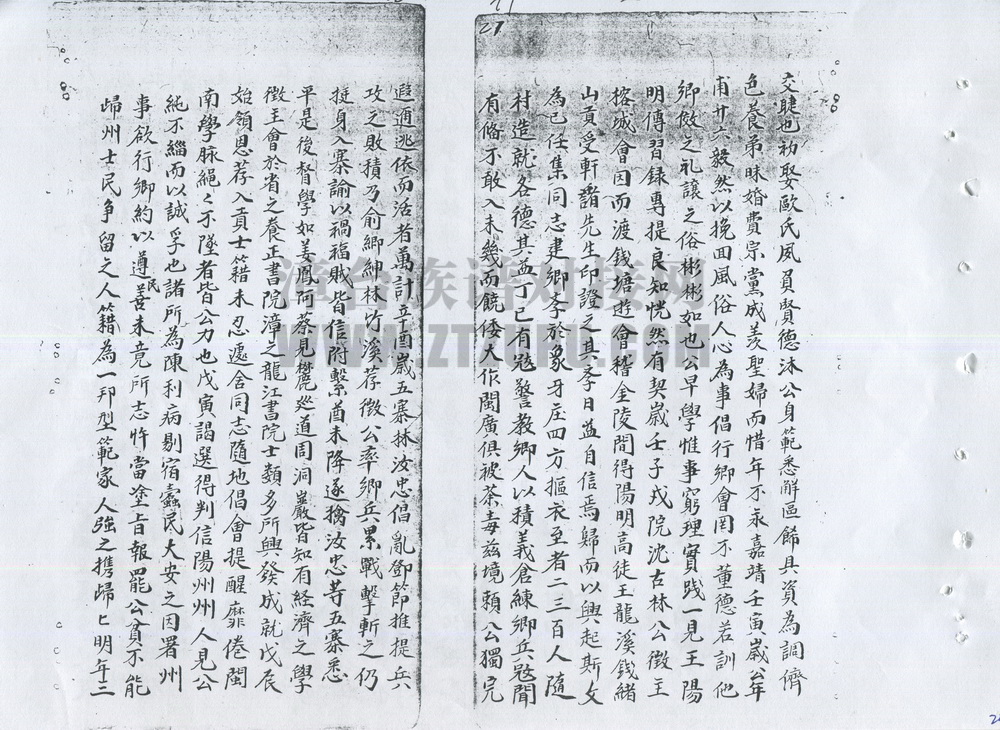 27
交睫也初娶歐氏夙員賢德沐公身範悉解區餙具資為調儕
色養弟昧婚費宗黨咸羡聖婦而惜年不永嘉靖壬寅歲公年
甫廿六毅然以挽回風俗人心為事倡行鄉會罔不董德若訓他
鄉傚之礼讓之俗彬彬如也公早學惟事窮理實踐一見王陽
明傳習録專提良知恍然有契歲壬子戎院沈古林公徴主
榕城會因而渡錢塘遊會稽金陵間得陽明高徒王龍溪錢緒
山貢受軒諸先生印證之其季日益自信焉歸而以興起斯文
為已任集同志建鄉李於象牙庄四方摳衣至者二三百人随
村造就各德其益丁已有冦警教鄉人以積義倉練鄉兵冦聞
有俻不敢入未幾而饒倭大作閩廣俱被荼毒兹境頼公獨完
遐逋逃依而活者萬計辛酉歲五寨林汝忠倡亂鄧節推提兵
攻之敗積乃俞鄉紳林竹溪荐徴公率鄉兵累戰擊斬之仍
挺身入寨諭以禍福賊皆信附繫酋未降遂擒汝忠等五寨悉
平是後督學如姜鳳阿蔡見麓廵道周洞巖皆知有経濟之學
徴主會於省之養正書院漳之龍江書院士類多所興發成就戊辰
始領恩荐入貢士籍未忍遽舍同志隨地倡會提醒靡倦閩
南學脉繩々不墜者皆公力也戊寅謁選得判信陽州州人見公
純不緇而以誠孚也諸所為陳利病剔宿蠹民大安之因署州
事欲行鄉約以遵民善未竟所志忤當塗旨報罷公貧不能
歸州士民争留之人籍為一邦型範家人強之携歸匕明年二
淳台族谱对接网
WWW.ZTZUPU.COM